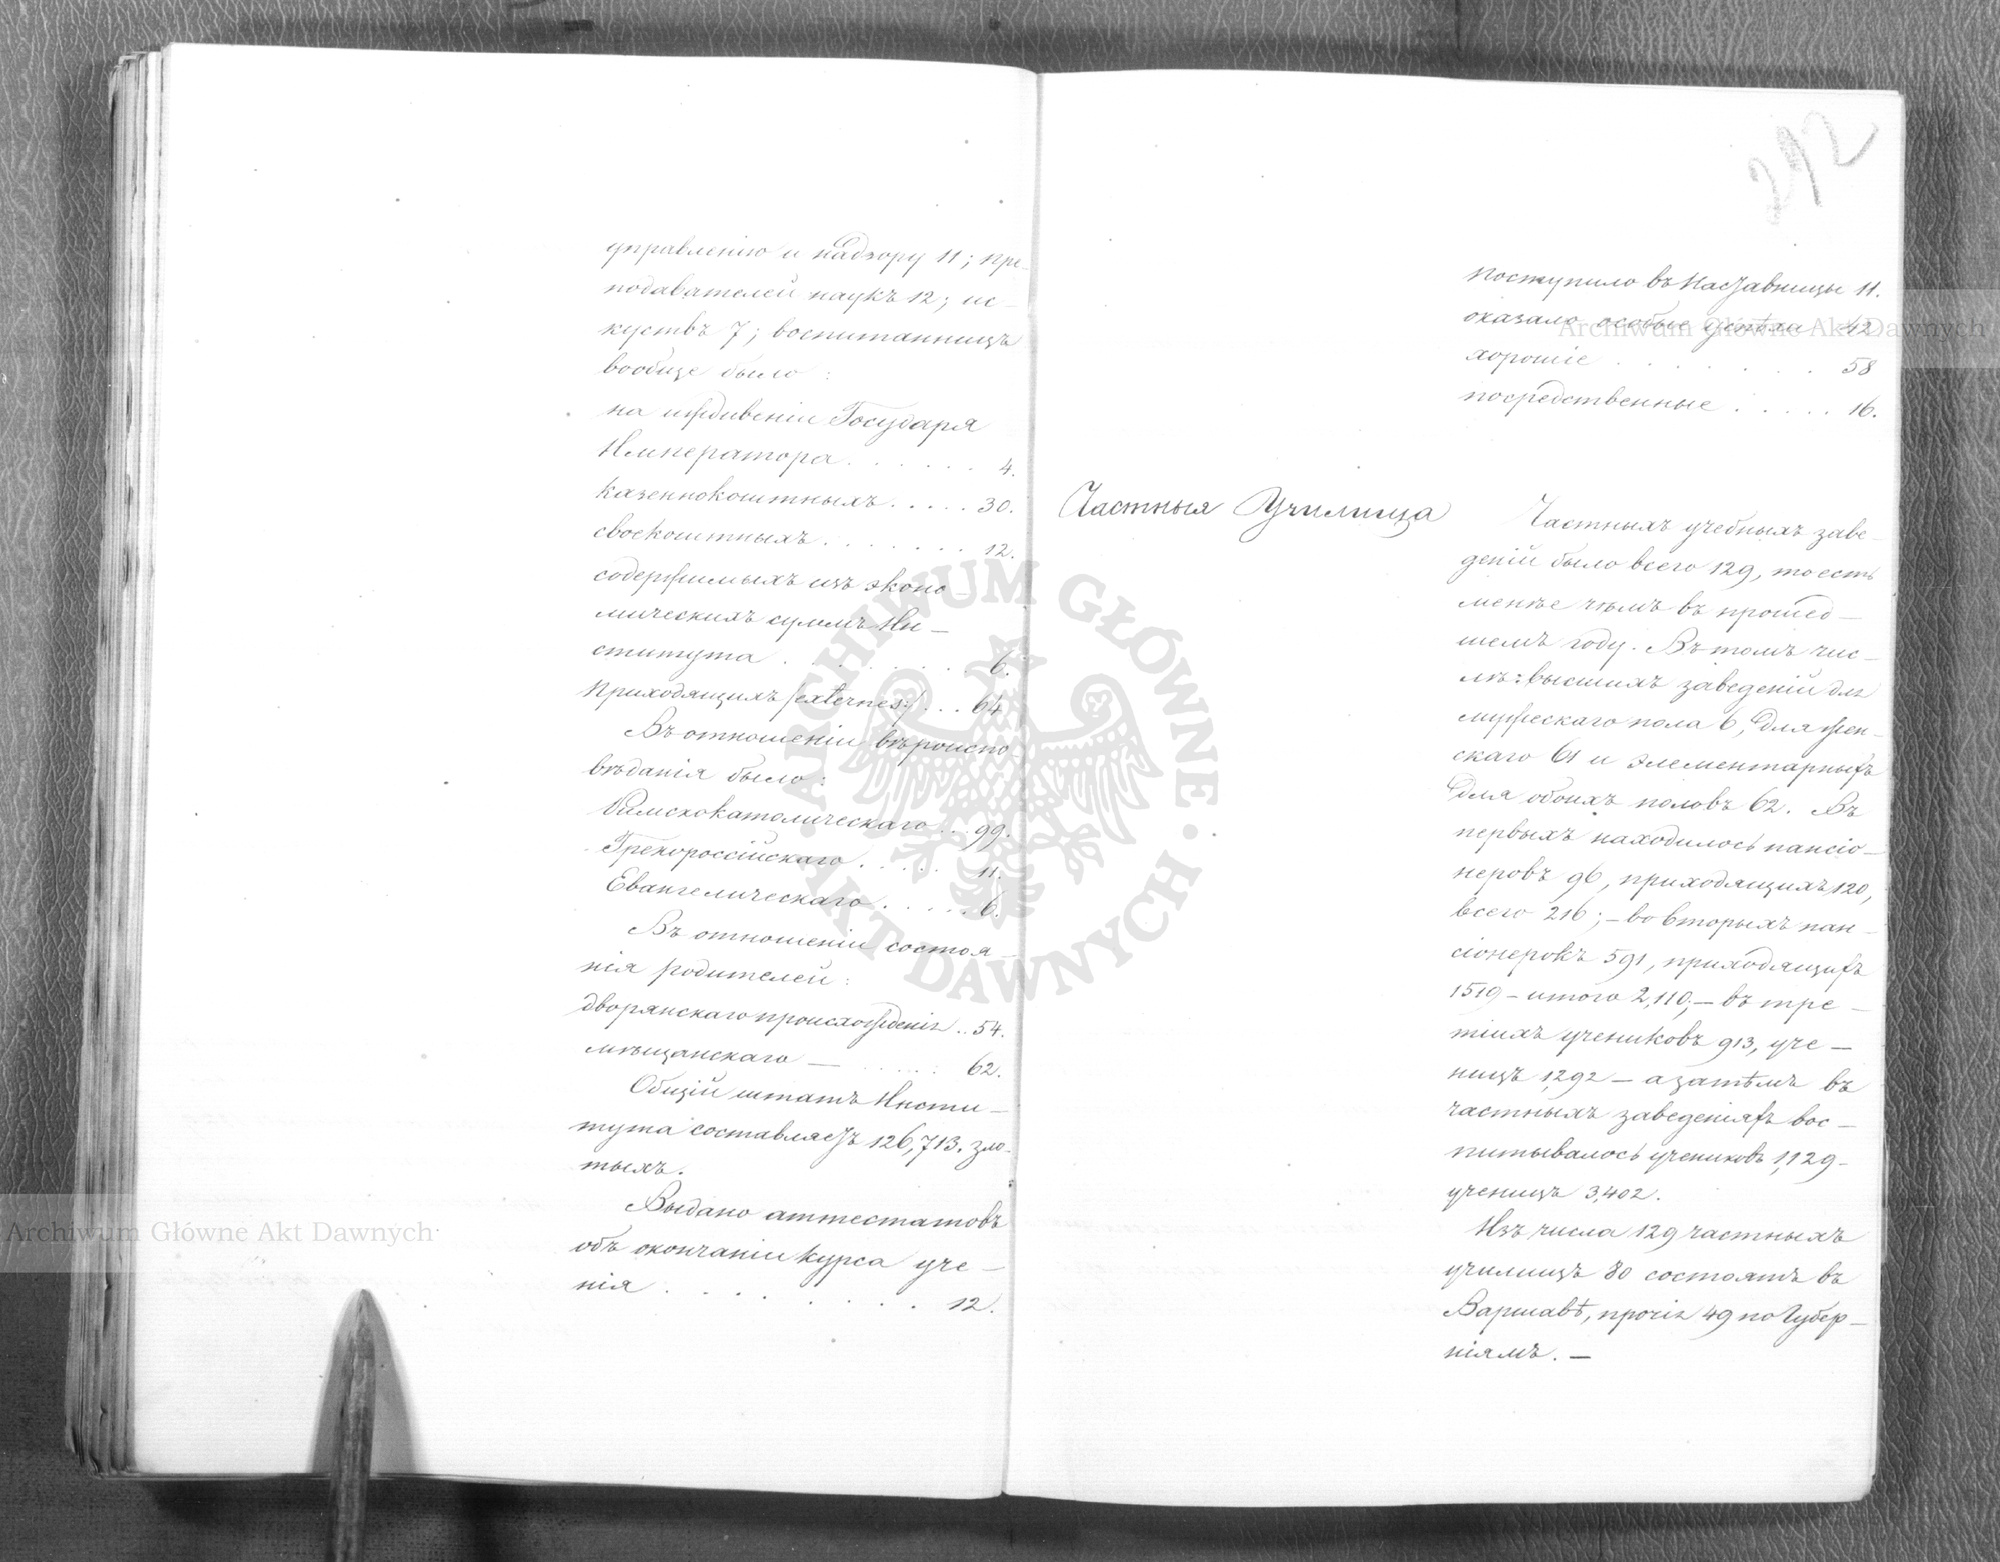 управленію и надзору 11; пре-
подавателей наукъ 12; ис-
куствъ 7; воспитанницъ
вообще было:
на иждивеніи Государя
Императора . . . . . . 4.
казеннокоштныхъ . . . . . 30.
своекоштныхъ . . . . . . . 12.
содержимыхъ изъ эконо-
мическихъ суммъ Ин-
ститута . . . . . . . . 6.
Приходящихъ /:externes:/ . . . 64
Въ отношеніи вѣроиспо-
вѣданія было:
Римскокатолическаго . . . 99.
Грекороссійскаго . . . . . 11.
Евангелическаго . . . . . 6.
Въ отношеніи состоя-
нія родителей:
дворянскаго происхожденія . . 54.
мѣщанскаго — . . . . . 62.
Общій штатъ Инсти-
тута составляетъ 126,713. зло-
тыхъ.
Выдано аттестатовъ
объ окончаніи курса уче-
нія . . . . . . . . 12.
292
поступило въ Наставницы 11.
оказало особые успѣхи 42
хорошіе . . . . . . . 58
посредственные . . . . . 16.
Частныя Училища
Частныхъ учебныхъ заве-
деній было всего 129, то есть
менѣе чѣмъ въ прошед-
шемъ году. Въ томъ чис-
лѣ: высшихъ заведеній для
мужескаго пола 6, для жен-
скаго 61 и элементарныхъ
для обоихъ половъ 62. Въ
первыхъ находилось пансіо-
неровъ 96, приходящихъ 120,
всего 216; — во вторыхъ пан-
сіонерокъ 591, приходящихъ
1519 — итого 2,110; — въ тре-
тіихъ учениковъ 913, уче-
ницъ 1,292 — а затѣмъ въ
частныхъ заведеніяхъ вос-
питывалось учениковъ 1,129 -
ученицъ 3,402.
Изъ числа 129 частныхъ
училищъ 80 состоятъ въ
Варшавѣ, прочія 49 по Губер-
ніямъ. —
Archiwum Główne Akt Dawnych
Archiwum Główne Akt Dawnych
ARCHIWUM GŁÓWNE · AKT DAWNYCH ·